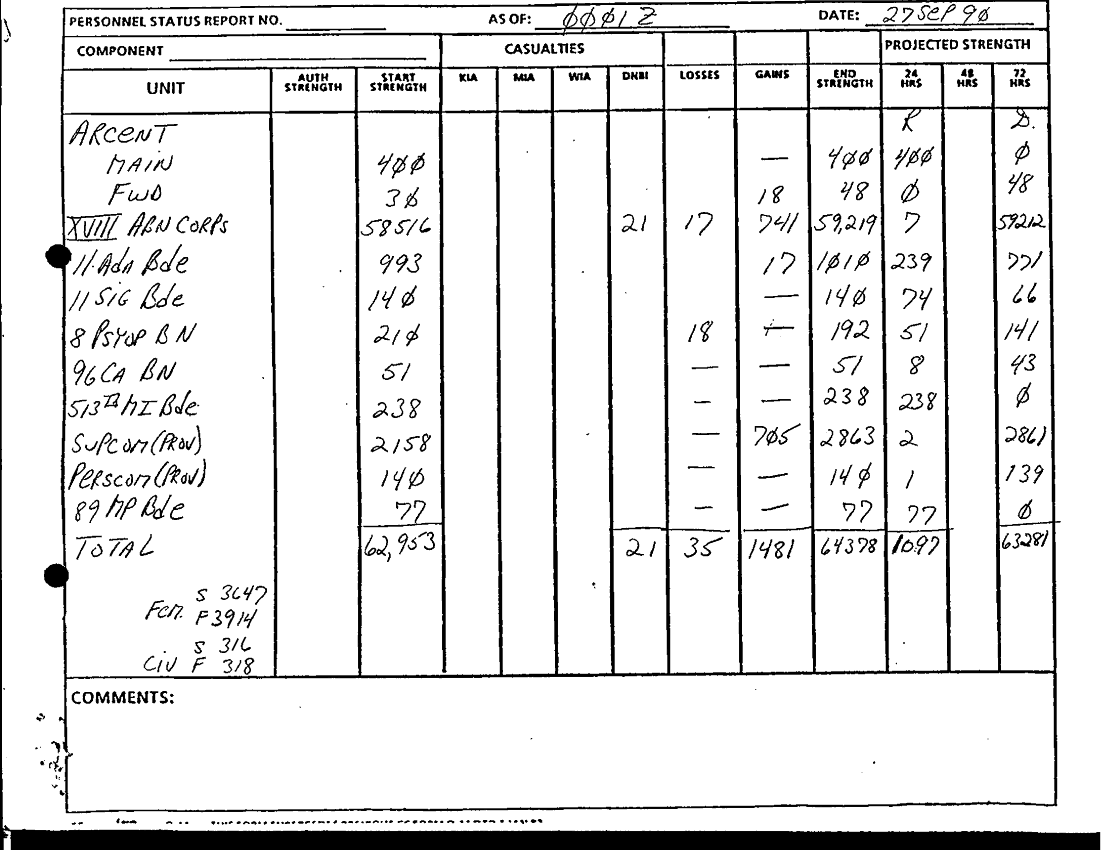 PERSONNEL STATUS REPORT NO. AS OF: ØØØ1Z DATE: 27 SEP 9Ø
COMPONENT CASUALTIES PROJECTED STRENGTH
UNIT AUTH STRENGTH START STRENGTH KIA MIA WIA DNBI LOSSES GAINS END STRENGTH 24 HRS 48 HRS 72 HRS
ARCENT R D.
MAIN 4ØØ — 4ØØ 4ØØ Ø
FWD 3Ø 18 48 Ø 48
XVIII ABN CORPS 58516 21 17 741 59,219 7 59212
11 ADA Bde 993 17 1Ø1Ø 239 771
11 SIG Bde 14Ø — 14Ø 74 66
8 PSYOP BN 21Ø 18 — 192 51 141
96 CA BN 51 — — 51 8 43
513th MI Bde 238 — — 238 238 Ø
SUPCOM (PROV) 2158 — 7Ø5 2863 2 2861
PERSCOM (PROV) 14Ø — — 14Ø 1 139
89 MP Bde 77 — — 77 77 Ø
TOTAL 62,953 21 35 1481 64378 1097 63281
S 3647
Fem. F 3914
S 316
Civ F 318
COMMENTS: